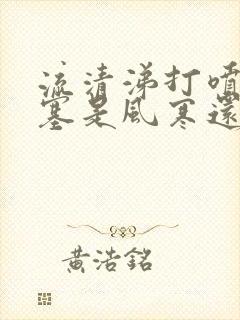 流清涕打噴
塞是風寒還
黃浩銘